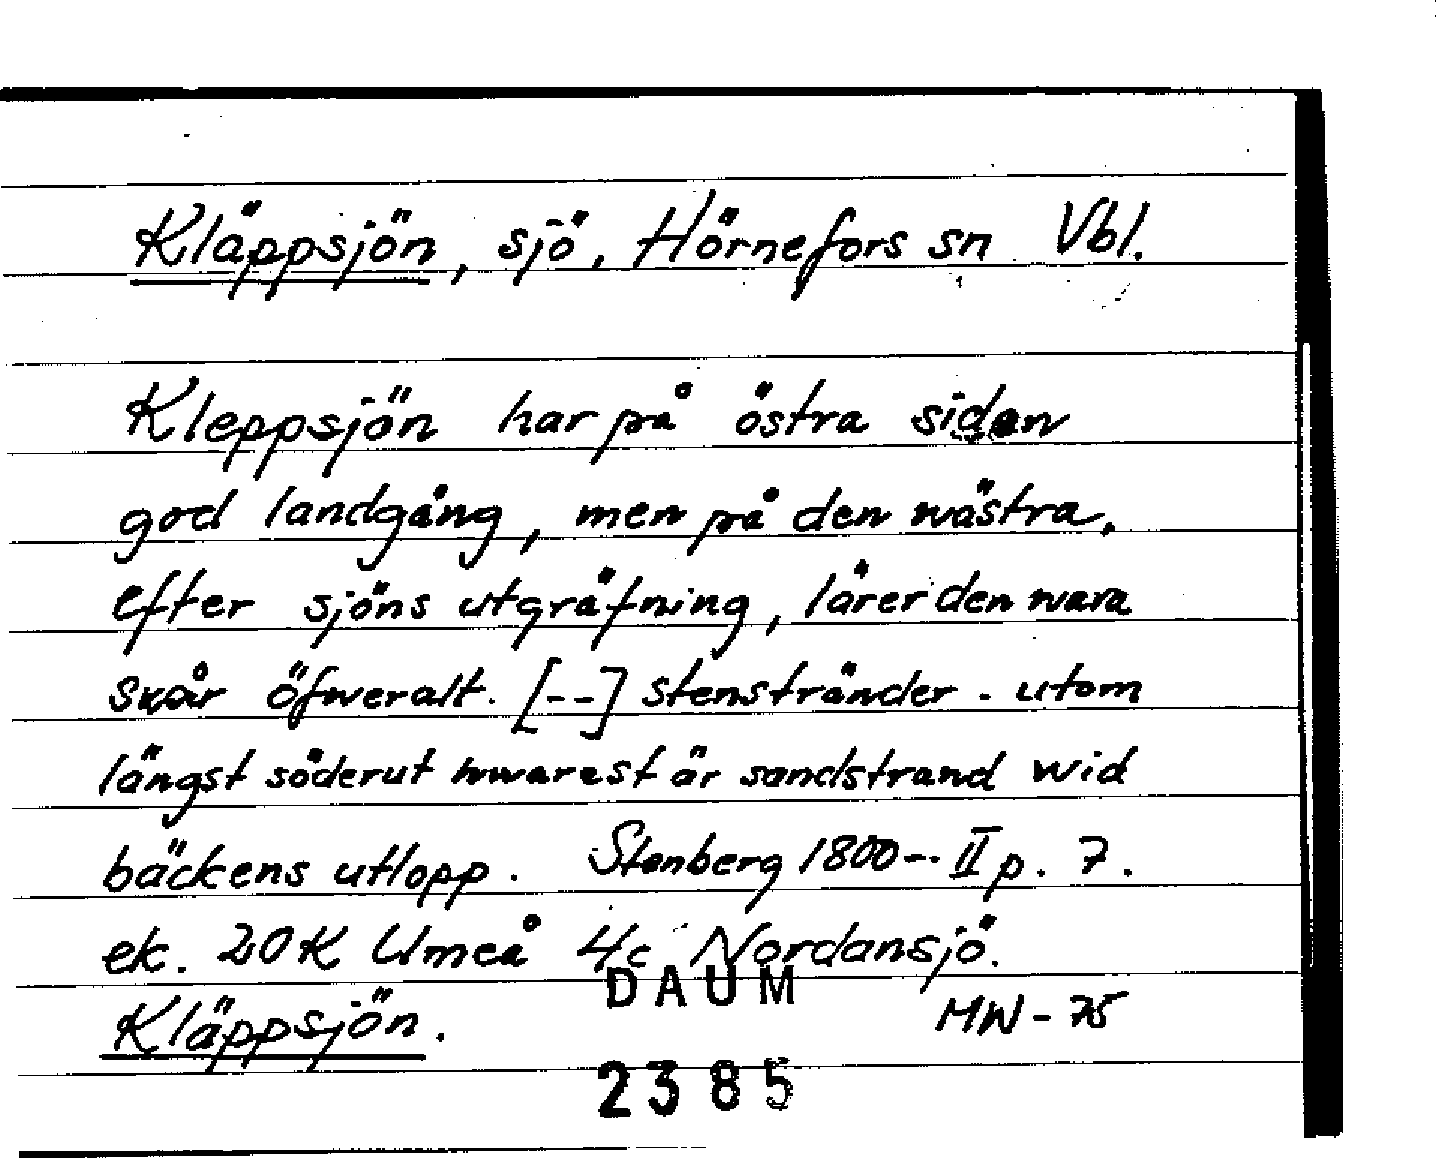 Kläppsjön, sjö, Hörnefors sn Vbl.
Kleppsjön har på östra sidan
god landgång, men på den wästra,
efter sjöns utgräfning, lärer den wara
svår öfweralt. [--] stenstränder - utom
längst söderut hwarest är sandstrand wid
bäckens utlopp. Stenberg 1800-- II p. 7.
ek. 20K Umeå 4c Nordansjö.
Kläppsjön. MW-75
DAUM
2385